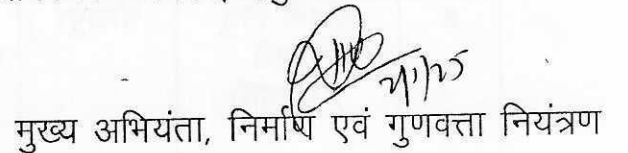 मुख्य अभियंता, निर्माण एवं गुणवत्ता नियंत्रण